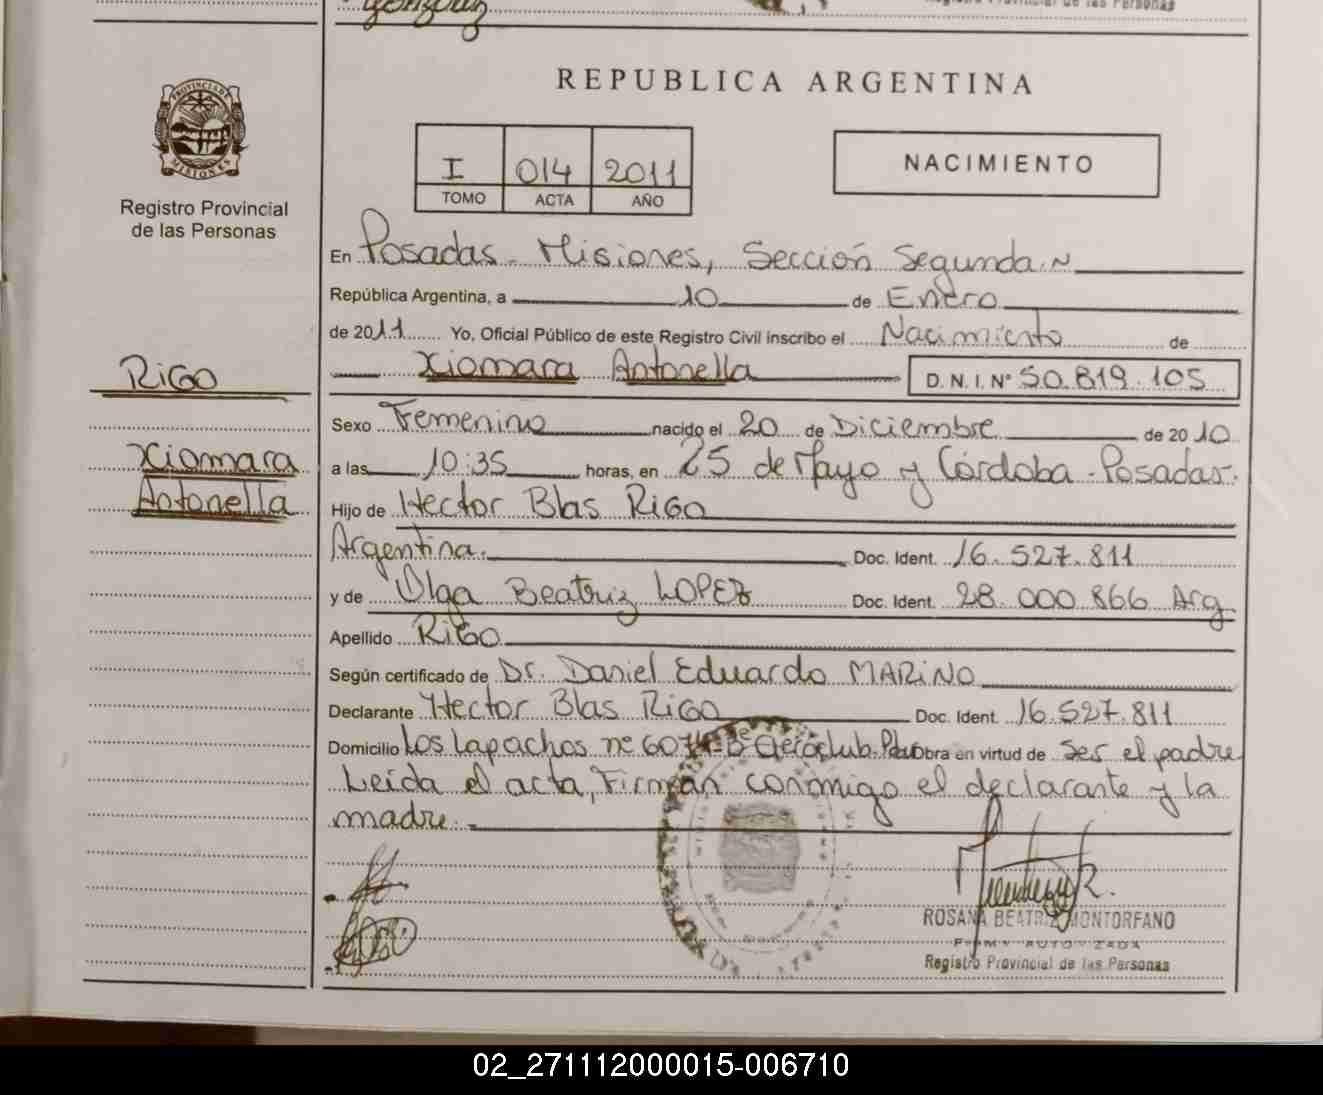 Gonzalez
Registro Provincial de las Personas
PROVINCIA DE
MISIONES
Registro Provincial
de las Personas
REPUBLICA ARGENTINA
I 014 2011
TOMO ACTA AÑO
NACIMIENTO
En Posadas - Misiones, Sección Segunda.~
República Argentina, a 10 de Enero
de 2011 Yo, Oficial Público de este Registro Civil inscribo el Nacimiento de
Xiomara Antonella D. N. I. Nº 50.819.105
RIGO
Xiomara
Antonella
Sexo Femenino nacido el 20 de Diciembre de 2010
a las 10:35 horas, en 25 de Mayo y Córdoba - Posadas.
Hijo de Hector Blas RIGO
Argentina. Doc. Ident. 16.527.811
y de Olga Beatriz LOPEZ Doc. Ident. 28.000.866 Arg
Apellido RIGO
Según certificado de Dr. Daniel Eduardo MARINO
Declarante Hector Blas RIGO Doc. Ident. 16.527.811
Domicilio Los Lapachos nº 607 Aeroclub. obra en virtud de ser el padre
Leida el acta, Firman conmigo el declarante y la
madre.
ROSANA BEATRIZ MONTORFANO
FIRMA AUTORIZADA
Registro Provincial de las Personas
02_271112000015-006710